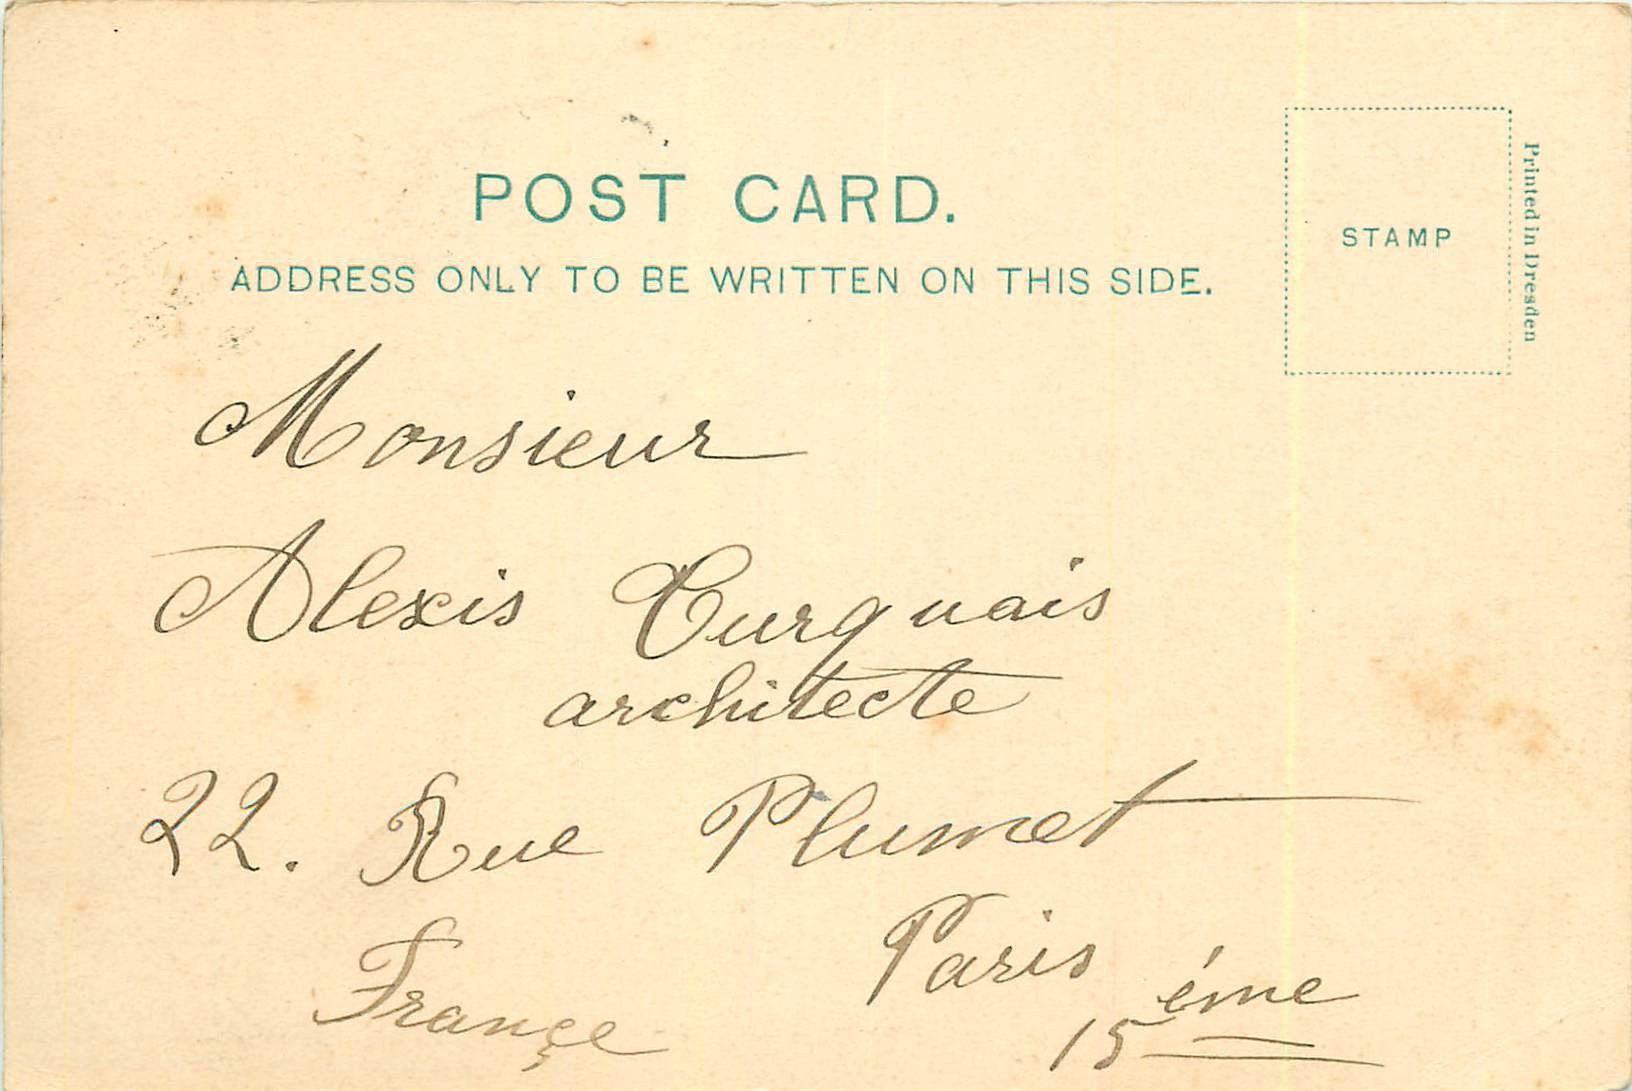 POST CARD.
ADDRESS ONLY TO BE WRITTEN ON THIS SIDE.
STAMP
Printed in Dresden
Monsieur
Alexis Turquais
architecte
22. Rue Plumet
Paris 15 éme
Françe